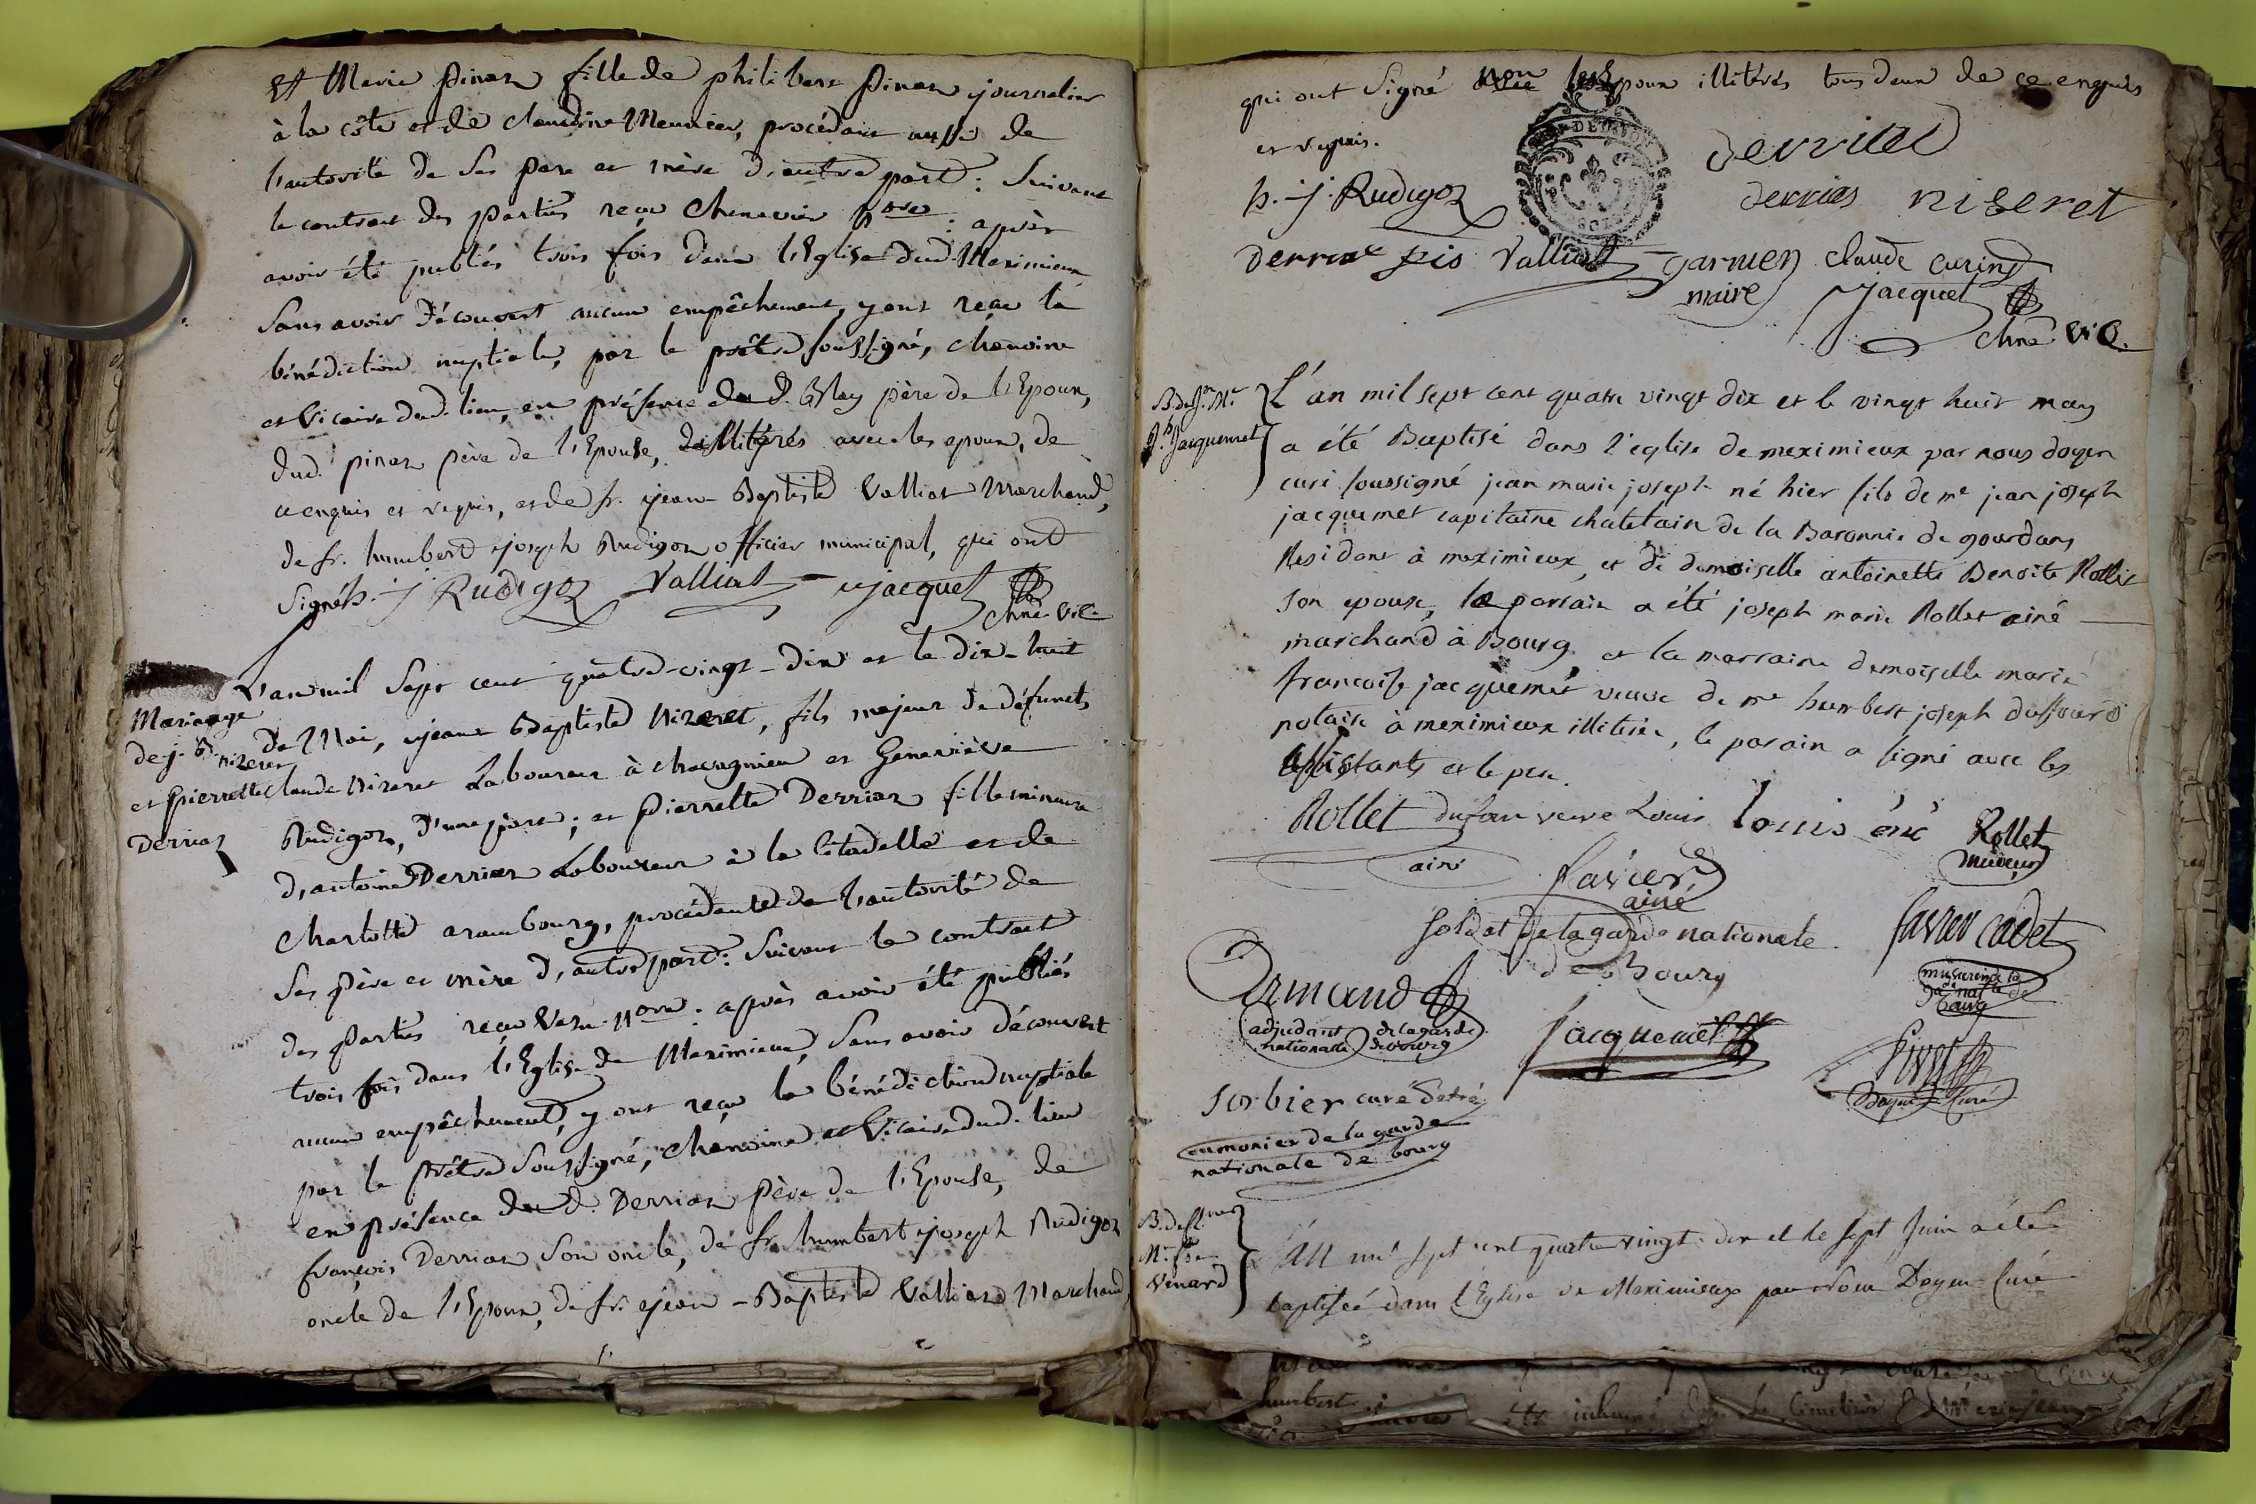 et Marie pinaz fille de philibert pinaz journalier
à la côte et de claudine Meunier, procédant aussi de
l'autorité de ses pere et mère d'autre part : Suivant
le contrat des parties reçu Chenevier nore : après
avoir été publiés trois fois dans l'Eglise dud. Meximieux
Sans avoir découvert aucun empêchement, y ont reçu la
bénédiction nuptiale, par le prêtre soussigné, chanoine
et Vicaire dud. lieu, en présence du d. père de l'Epoux,
dud. pinaz père de l'Epouse, illitérés avec les epoux, de
ce enquis et requis, et de sr. jean-Baptiste Valliat Marchand,
de sr. humbert joseph Rudigoz officier municipal, qui ont
Signé h. j Rudigoz Valliat jacquet
chne. vic.
L'an mil sept cent quatre-vingt-dix et le dix-huit
Mariage
de j. B. nizeret
et pierrette
Derriaz
de Mai, jean Baptiste Nizeret, fils majeur de défunts
Claude Nizeret Laboureur à chavagnieu et Geneviève
Rudigoz, d'une part ; et pierrette Derriaz fille mineure
d'antoine Derriaz Laboureur à la Citadelle et de
Charlotte arambourg, procédante de l'autorité de
Ses père et mère d'autre part : Suivant le contrat
des parties reçu nore : après avoir été publiés
trois fois dans l'Eglise de Meximieux, Sans avoir découvert
aucun empêchement, y ont reçu la bénédiction nuptiale
par le prêtre Soussigné, chanoine et Vicaire dud. lieu
en présence du d. Derriaz père de l'Epouse, de
françois Derriaz son oncle, de sr. humbert joseph Rudigoz
oncle de l'Epoux, de sr. jean-Baptiste Valliat Marchand,
qui ont Signé non les Epoux illitérés tous deux de ce enquis
et requis.
h. j. Rudigoz derriaz
derrias nizeret
Valliat garnier claude curind
maire jacquet
chne vic.
B. de jn. Mie
jh. jacquemet
L'an mil sept cent quatre vingt dix et le vingt huit may
a été Baptisé dans l'eglise de meximieux par nous doyen
curé soussigné jean marie joseph né hier fils de me jean joseph
jacquemet capitaine chatelain de la Baronnie de gourdans
Residant à meximieux, et de demoiselle antoinette Benoite Rollet
son epouse, le parrain a été joseph marie Rollet ainé
marchand à Bourg, et la marraine demoiselle marie
françoise jacquemet veuve de me humbert joseph
notaire à meximieux illiterée, le parain a signé avec les
assistants et le pere.
Rollet Louis louis Rollet
ainé mineur
favier
ainé
soldat de la garde nationale favier cadet
de Bourg
musicien de la
garde nale de
bourg
Armand
adjudant de la garde
nationale de bourg
jacquemet
doyen curé
Sorbier curé
aumonier de la garde
nationale de bourg
B. de
Vinard
L'an mil sept cent quatre vingt dix et le sept juin a été
baptisée dans l'Eglise de Meximieux par Nous Doyen Curé